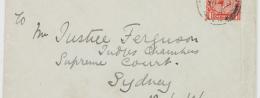 To Mr Justice Ferguson
Judges Chambers
Supreme Court.
Sydney